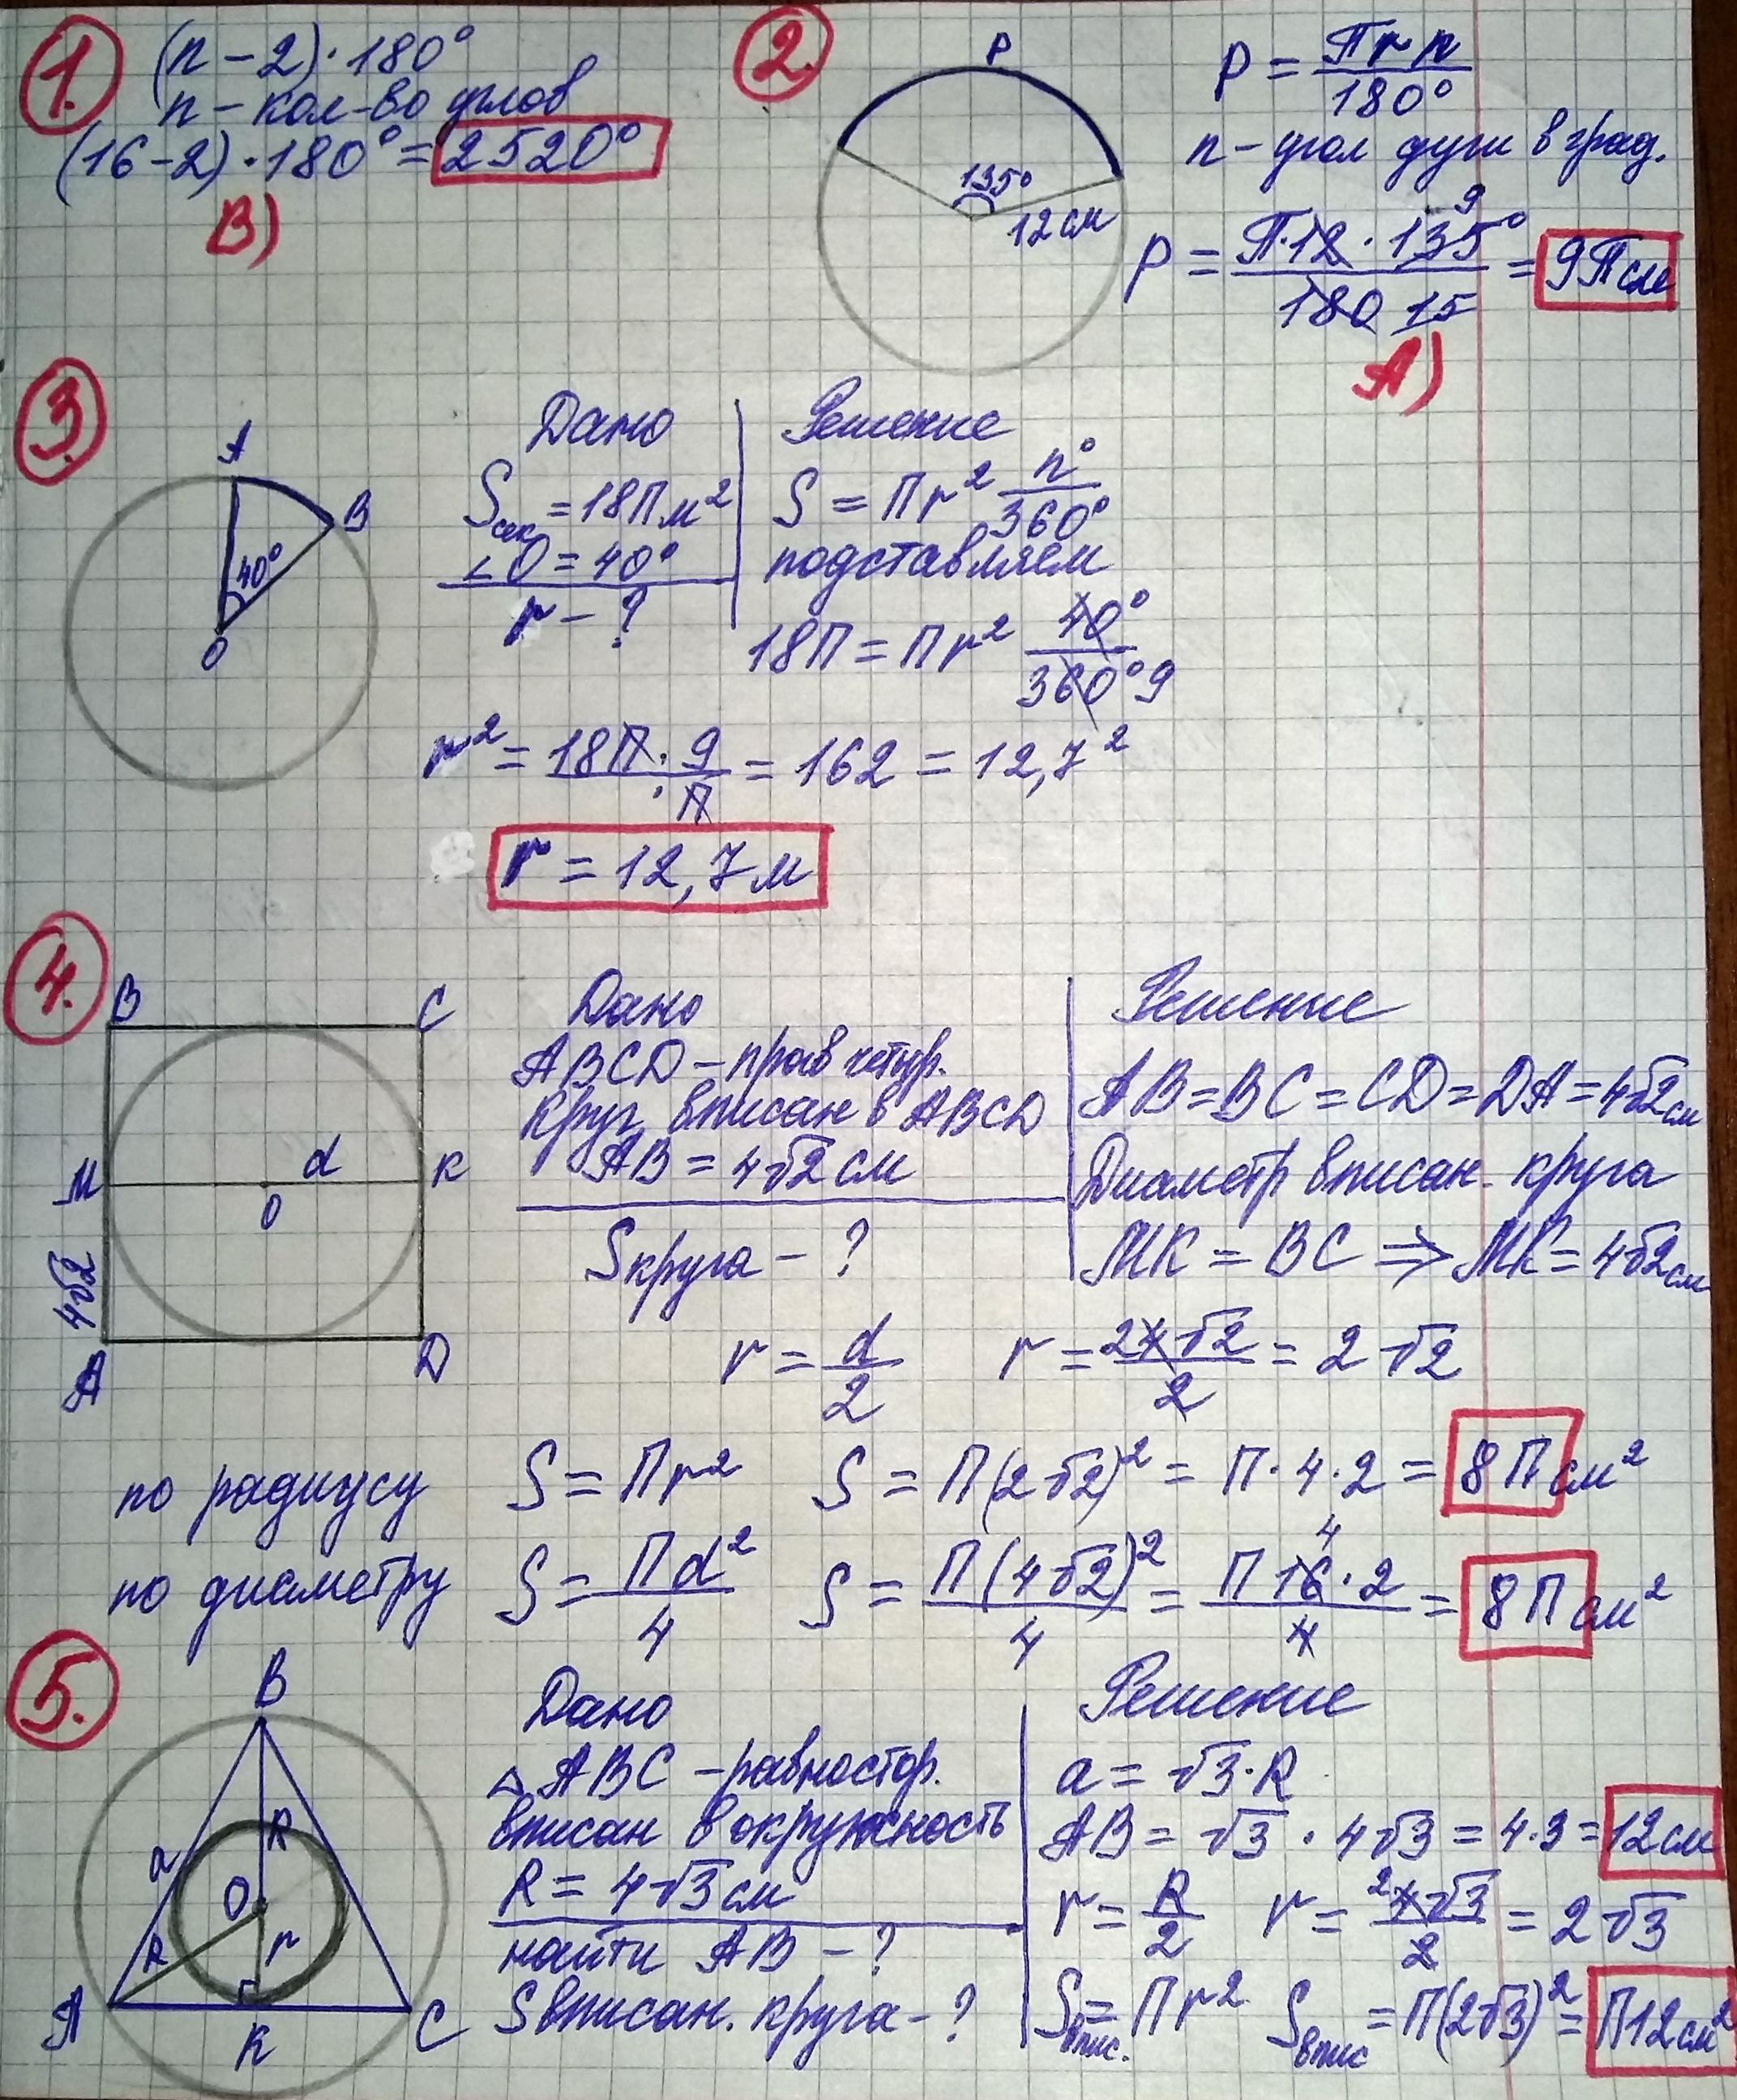 1.
(n-2)·180°
n - кол-во углов
(16-2)·180°=2520°
В)
2.
P
135°
12 см
P = Пrn/180°
n - угол дуги в град.
P = П·12·135°/180 = 9П см
9
15
А)
3.
A
B
40°
O
Дано
Sсек = 18П м²
∠O = 40°
r - ?
Решение
S = Пr² n°/360°
подставляем
18П = Пr² 40°/360° 9
r² = 18П·9/·П = 162 = 12,7²
r = 12,7 м
4.
B
C
M
d
K
O
4√2
A
D
Дано
ABCD - прав четыр.
круг вписан в ABCD
AB = 4√2 см
Sкруга - ?
Решение
AB=BC=CD=DA=4√2 см
Диаметр вписан. круга
MK = BC ⇒ MK = 4√2 см
r = d/2 r = 24√2/2 = 2√2
по радиусу S = Пr² S = П(2√2)² = П·4·2 = 8П см²
по диаметру S = Пd²/4 S = П(4√2)²/4 = П16·2/4 = 8П см²
4
5.
B
R
a
O
R
r
A
K
C
Дано
△ABC - равностор.
вписан в окружность
R = 4√3 см
найти AB - ?
Sвписан. круга - ?
Решение
a = √3·R
AB = √3·4√3 = 4·3 = 12 см
r = R/2 r = 24√3/2 = 2√3
Sвпис. = Пr² Sвпис = П(2√3)² = П12 см²